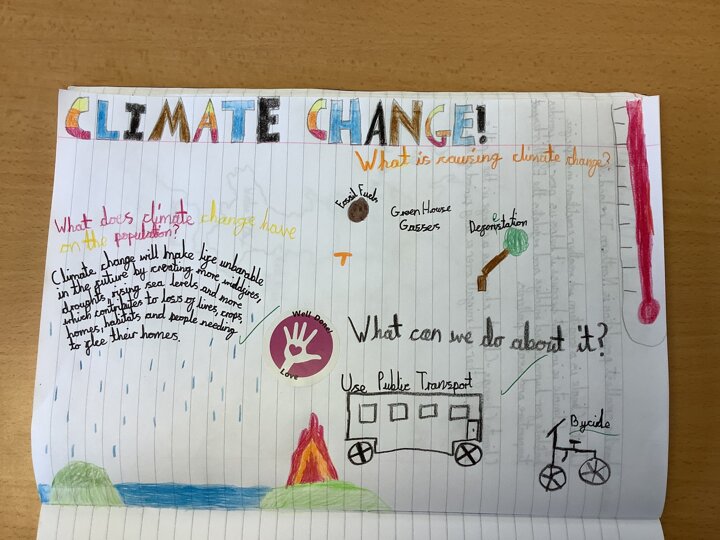 CLIMATE CHANGE!
What is causing climate change?
Fossil Fuels
GreenHouse
Gasses
Deforestation
What does climate change have
on the population?
Climate change will make life unbarable
in the future by creating more wildfires,
droughts, rising sea levels and more
which contributes to loss of lives, crops,
homes, habitats and people needing
to flee their homes.
Well Done!
Love
What can we do about it?
Use Public Transport
Bycicle